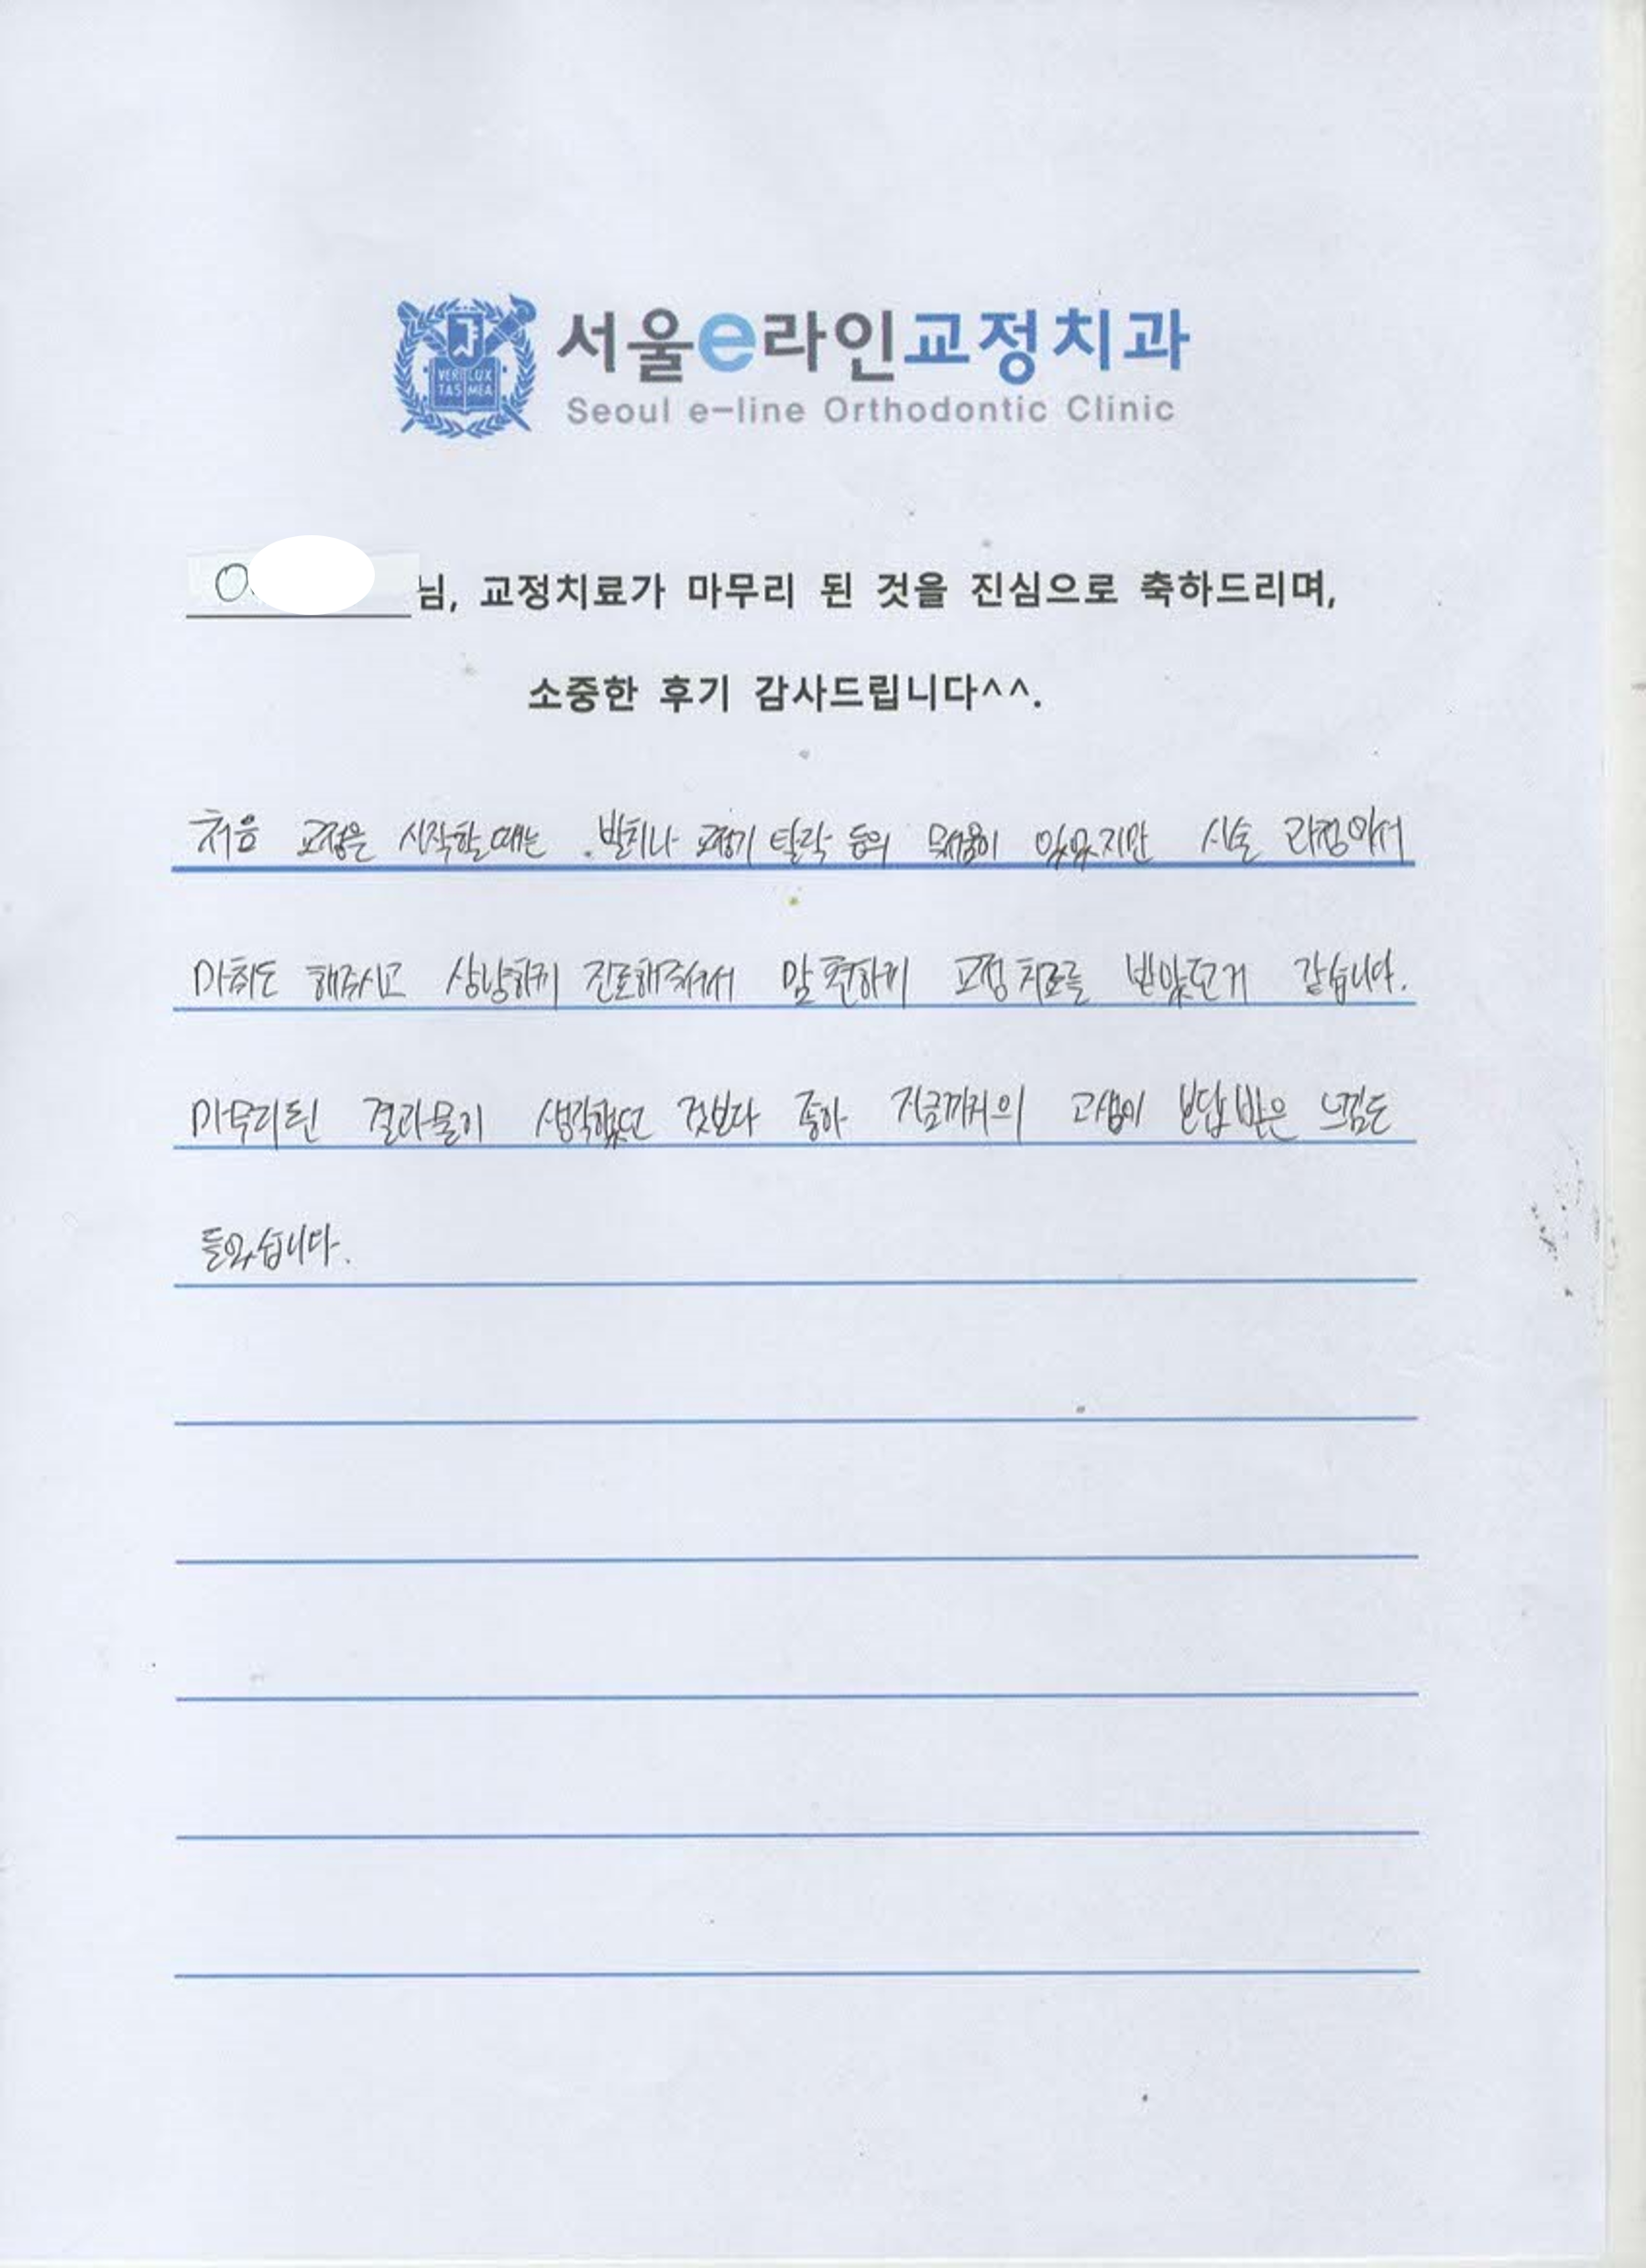 VERI LUX
TAS MEA
서울e라인교정치과
Seoul e-line Orthodontic Clinic
님, 교정치료가 마무리 된 것을 진심으로 축하드리며,
소중한 후기 감사드립니다^^.
처음 교정은 시작할때는 발치나 교정기 탈락 등의 무서움이 있었지만 시술 과정에서
마취도 해주시고 상냥하게 진료해주셔서 맘 편하게 교정치료를 받았던거 같습니다.
마무리된 결과물이 생각했던 것보다 좋아 지금까지의 고생이 보답받은 느낌도
들었습니다.